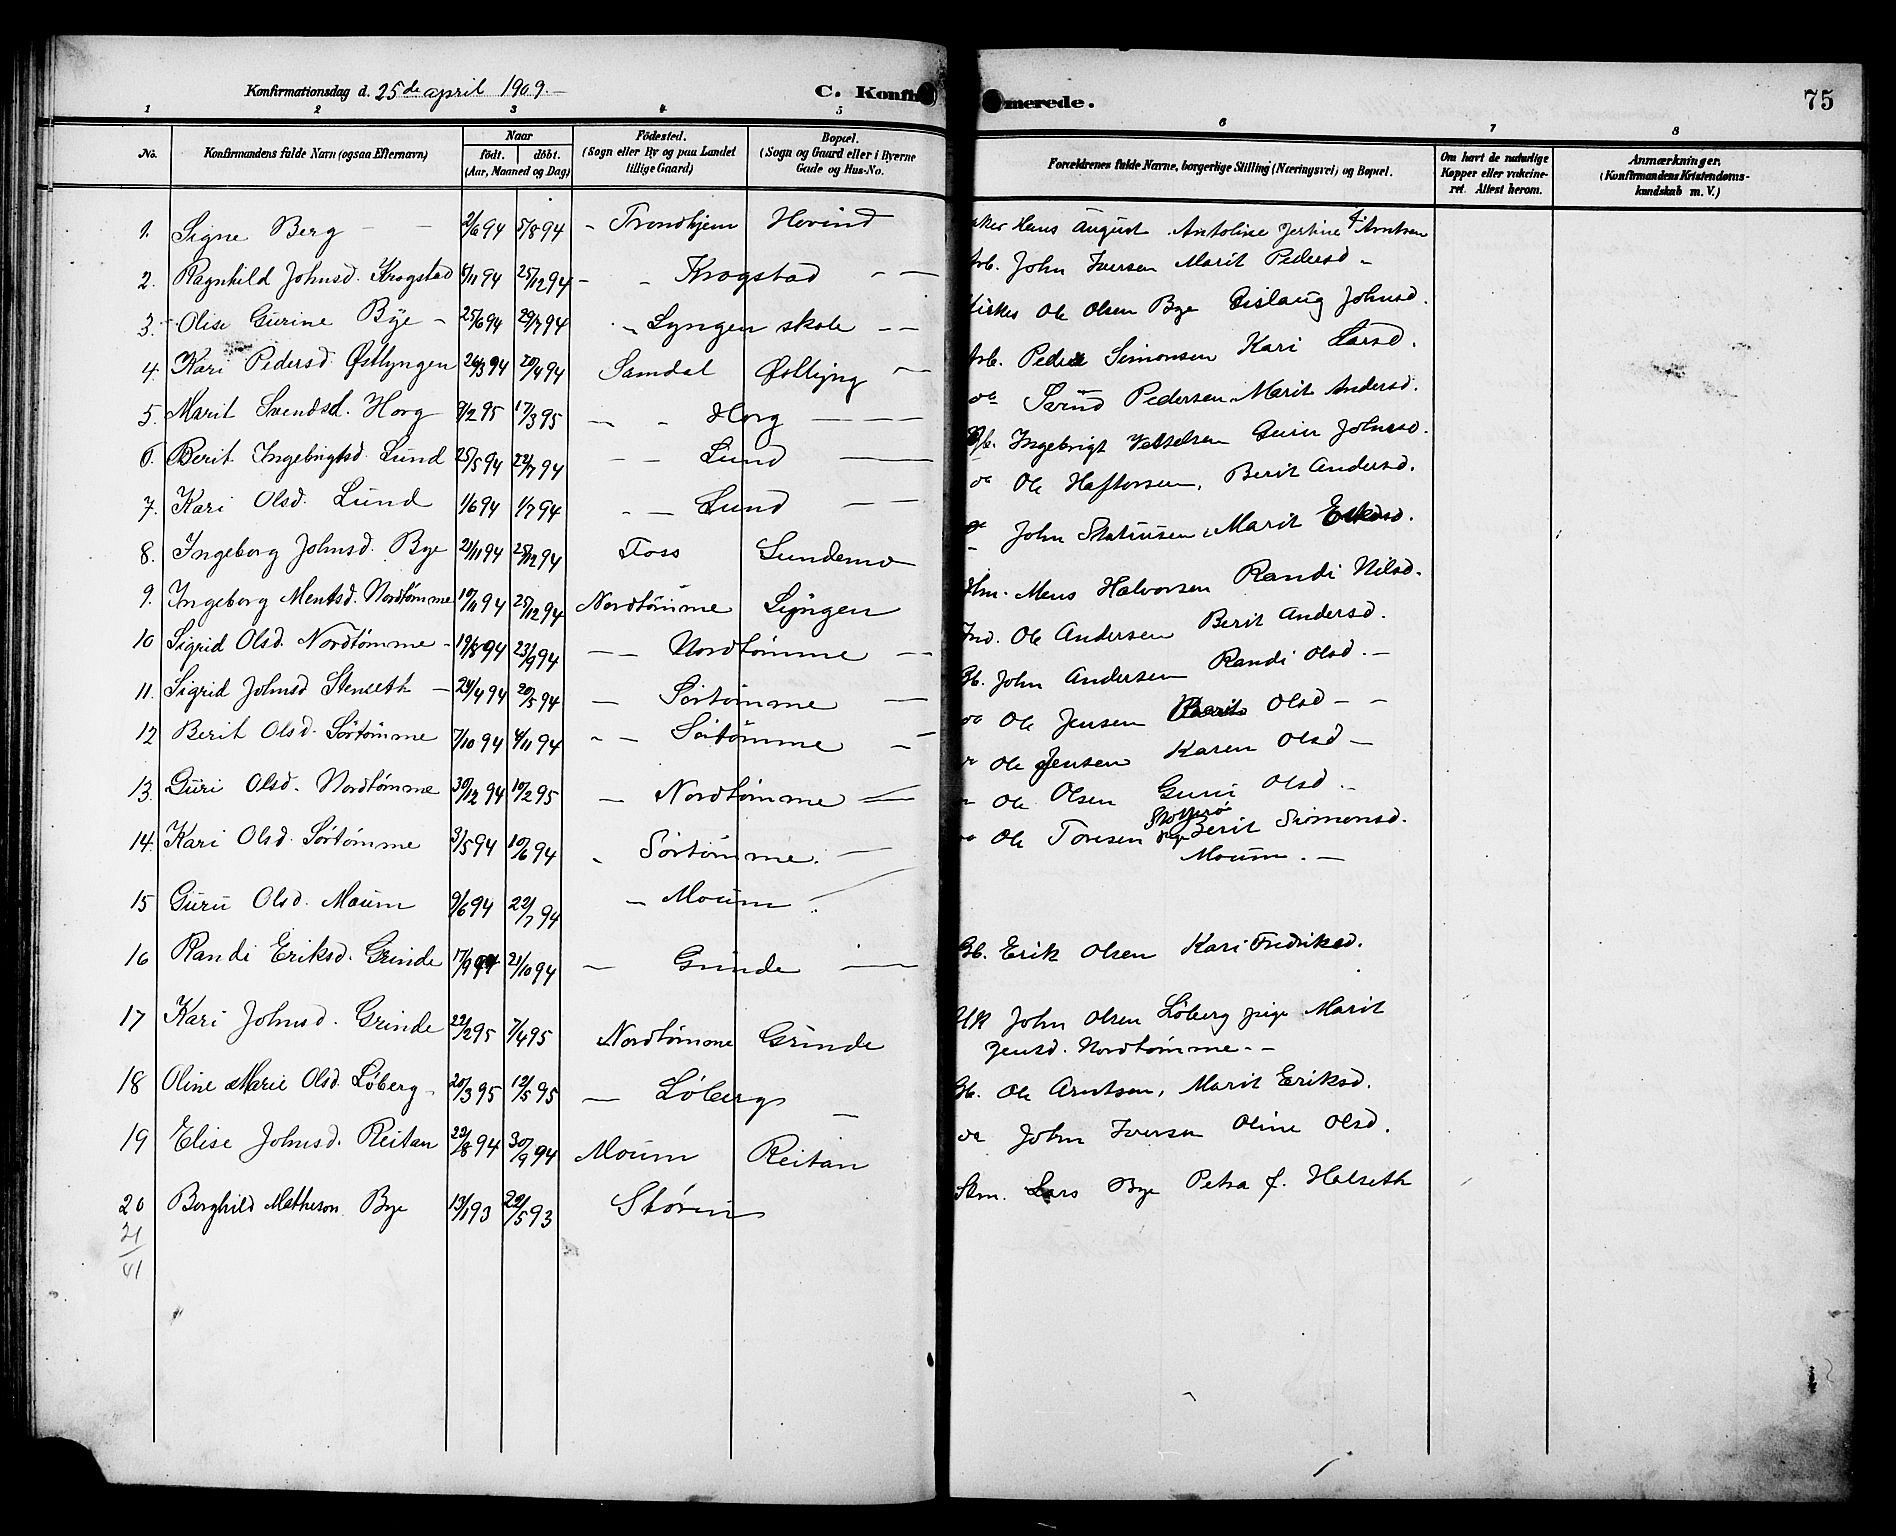 Konfirmationsdag d. 25de april 1909.
C. Konfir
merede.
75
1 2 3 4 5 6 7 8
No.
Konfirmandens fulde Navn (ogsaa Efternavn)
Naar
födt. döbt.
(Aar, Maaned og Dag)
Födested.
(Sogn eller By og paa Landet
tillige Gaard)
Bopæl.
(Sogn og Gaard eller i Byerne
Gade og Hus-No.
Forældrenes fulde Navne, borgerlige Stilling (Næringsvei) og Bopæl.
Om havt de naturlige
Kopper eller vakcine-
ret. Attest herom.
Anmærkninger.
(Konfirmandens Kristendoms-
kundskab m. V.)
1. Signe Berg 2/6 94 5/8 94 Trondhjem Hovind Hans August Antoline Jertine Arntsen
2. Ragnhild Johnsd. Krogstad 8/11 94 25/12 94 Krogstad Arb. John Iversen Marit Pedersd
3. Olise Gurine Bye 25/6 94 29/7 94 Lyngen skole Ole Olsen Bye Gislaug Johnsd.
4. Kari Pedersd Østlyngen 26/3 94 29/4 94 Samdal Østlyng Arb. Peder Simonsen Kari Larsd.
5. Marit Svendsd. Horg 9/2 95 17/3 95 Horg Svend Pedersen Marit Andersd.
6. Berit Ingebrigtsd. Lund 25/5 94 22/7 94 Lund Ingebrigt Guru Johnsd.
7. Kari Olsd. Lund 1/6 94 1/7 94 Lund Ole Haftorsen, Berit Andersd.
8. Ingeborg Johnsd. Bye 21/11 94 25/12 94 Foss Sundemo John Marit
9. Ingeborg Mentsd. Nordtømme 10/11 94 25/12 94 Nordtömme Lyngen Hm. Mens Halvorsen Randi Nilsd.
10 Sigrid Olsd. Nordtømme 19/8 94 23/9 94 Nordtömme Ind. Ole Andersen Berit Andersd.
11. Sigrid Johnsd Stenseth 24/4 94 20/5 94 Sörtömme Gb. John Andersen Randi Olsd.
12 Berit Olsd. Sörtömme 7/10 94 4/11 94 Sörtömme Ole Jensen Olsd
Ole Jensen Karen Olsd
13. Guri Olsd. Nordtømme 30/12 94 10/2 95 Nordtömme Ole Olsen Guru Olsd.
14. Kari Olsd. Sörtömme 3/5 94 10/6 94 Sörtömme. Ole Toresen pige Berit Simonsd.
Moum.
15 Guru Olsd. Moum 9/6 94 22/7 94 Moum
16 Randi Eriksd. Grinde 17/9 94 21/10 94 Grinde Gb. Erik Olsen Kari Fredriksd.
17 Kari Johnsd. Grinde 22/2 95 7/4 95 Nordtömme Grinde UK John Olsen Löberg pige Marit
Jensd. Nordtömme.
18 Oline Marie Olsd. Löberg 20/3 95 12/5 95 Löberg Gb. Ole Arntsen, Marit Eriksd.
19 Elise Johnsd. Reitan 22/8 94 30/9 94 Moum Reitan John Iversen Oline Olsd.
20 Borghild Matheson Bye 13/1 93 22/5 93 Støren Stm. Lars Bye Petra f. Halseth
21
41